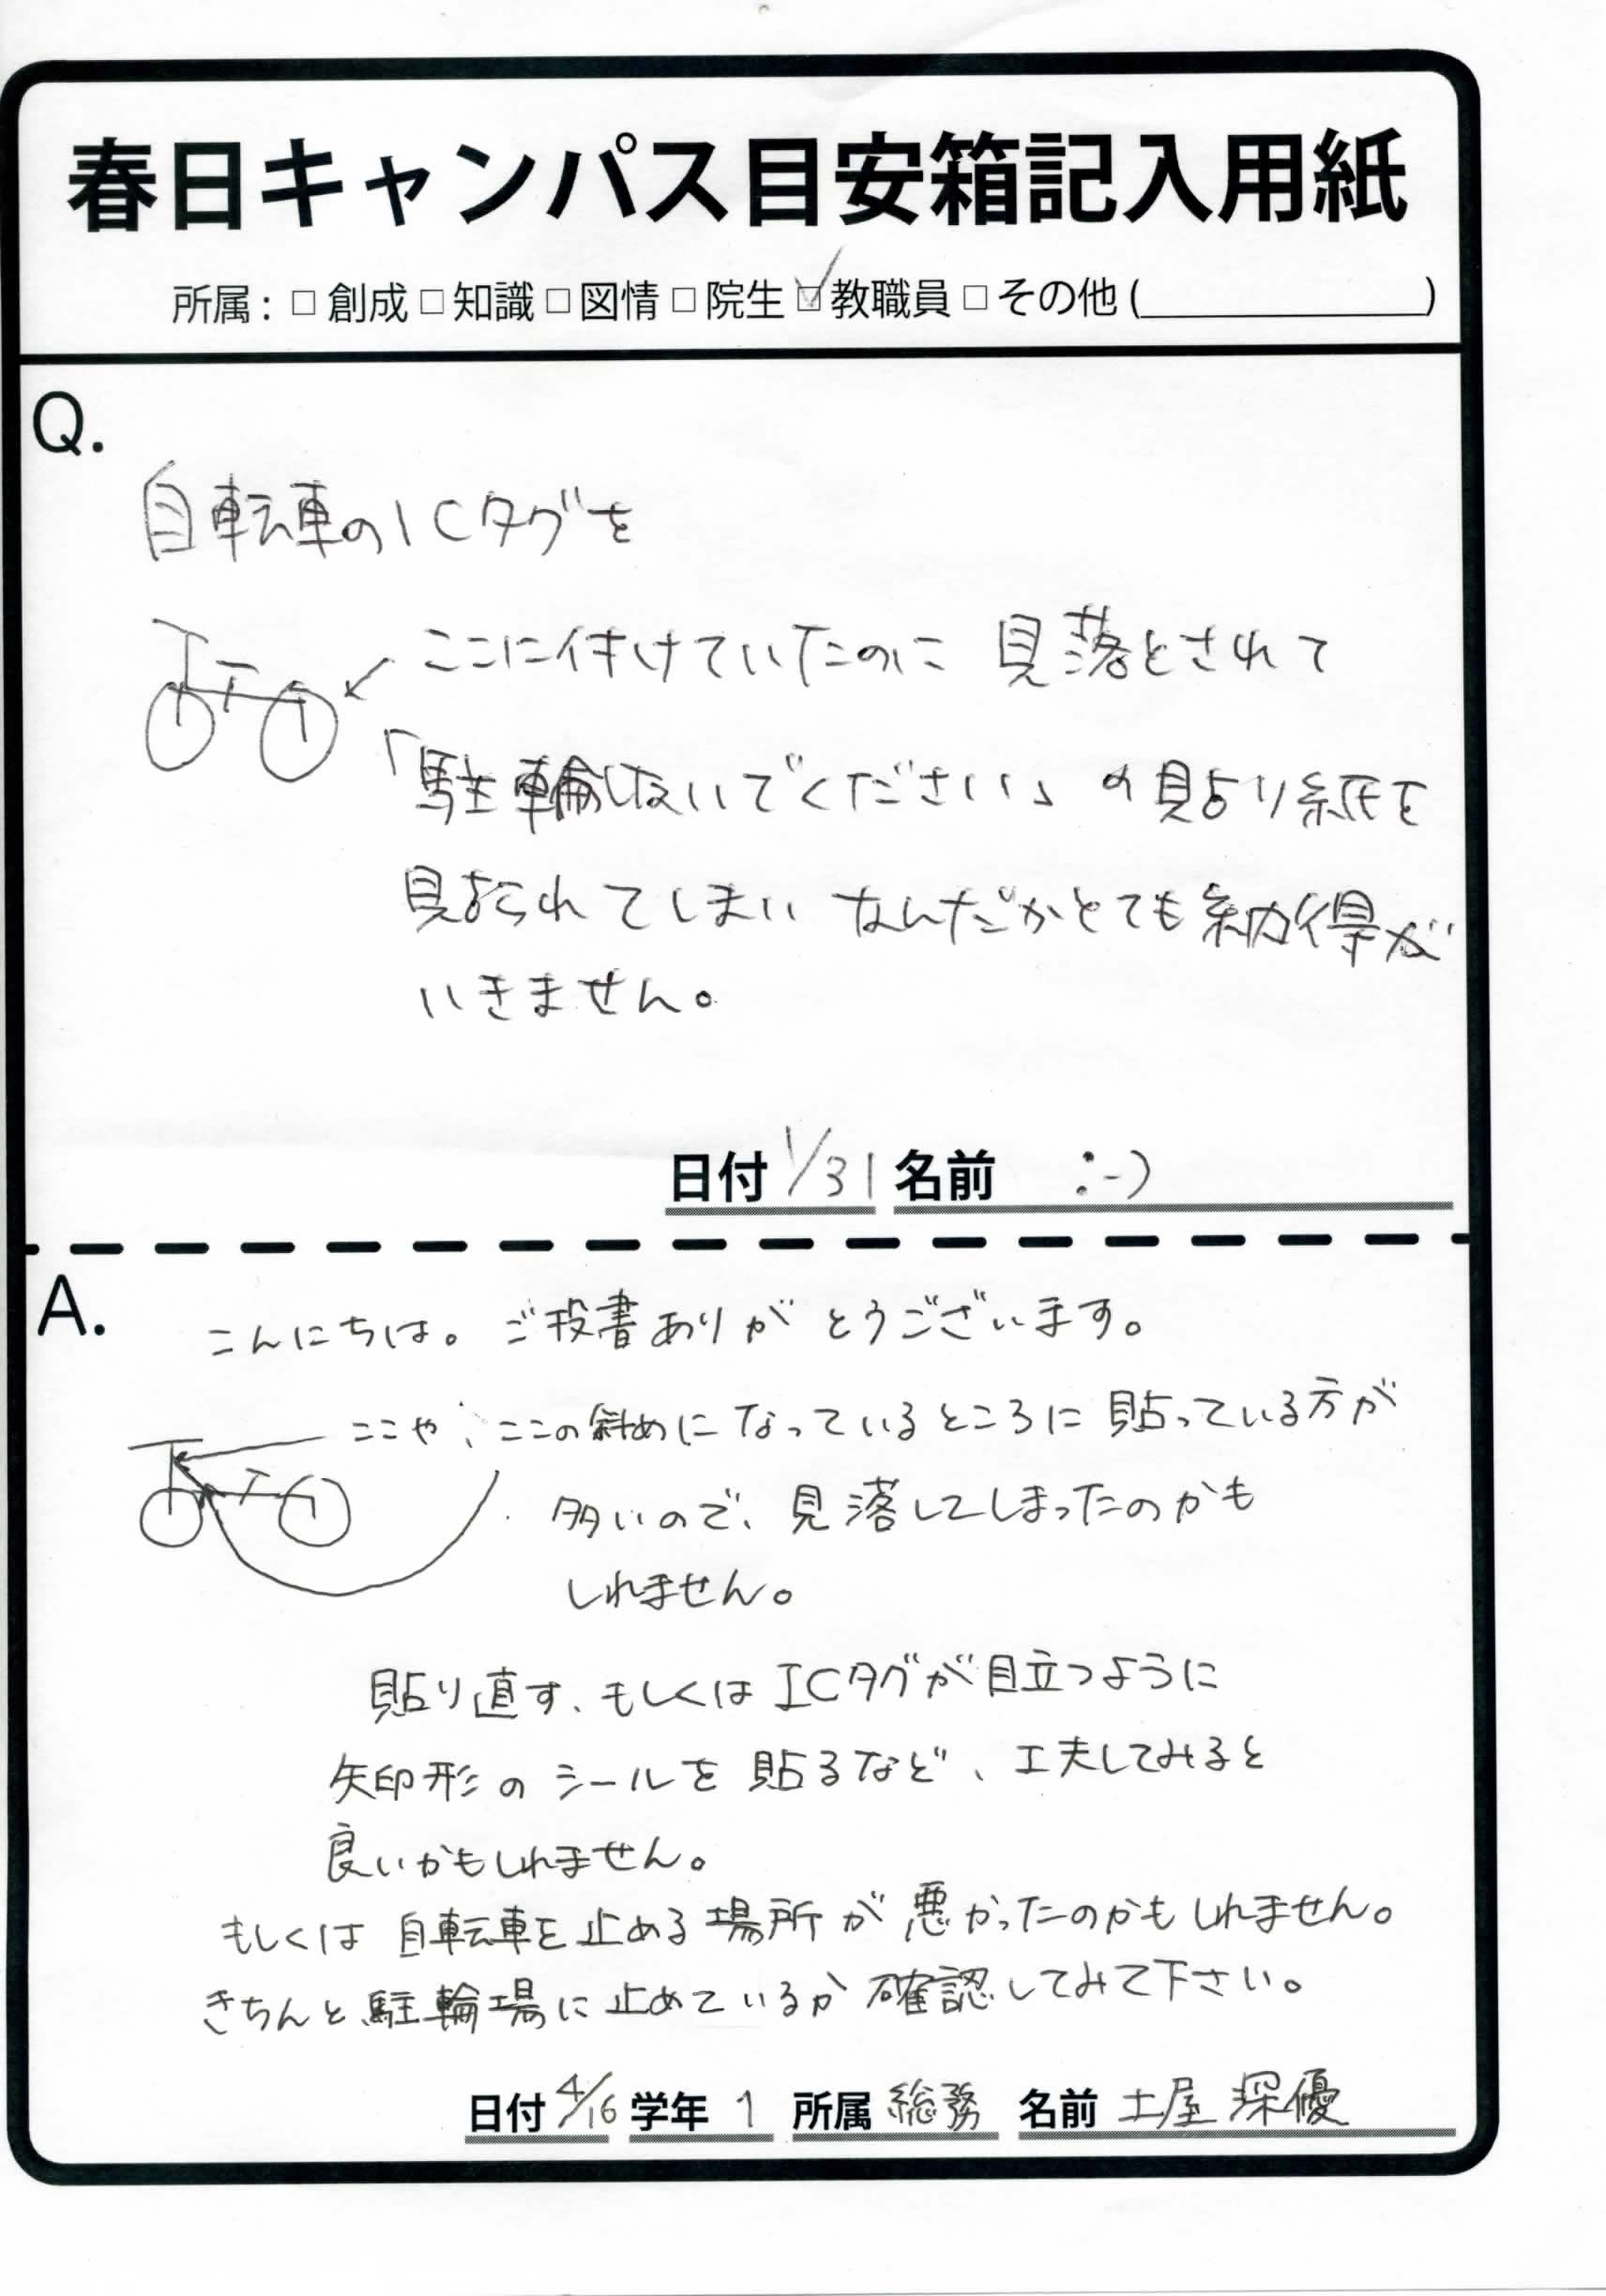 春日キャンパス目安箱記入用紙
所属：□ 創成 □ 知識 □ 図情 □ 院生 ☑ 教職員 □ その他 (                    )
Q.
自転車のICタグを
ここに付けていたのに 見落とされて
「駐輪しないでください」の貼り紙を
貼られてしまい なんだかとても納得が
いきません。
日付 1/31 名前 :-)
A.
こんにちは。ご投書ありがとうございます。
ここや、ここの斜めになっているところに貼っている方が
多いので、見落してしまったのかも
しれません。
貼り直す、もしくはICタグが目立つように
矢印形のシールを貼るなど、工夫してみると
良いかもしれません。
もしくは自転車を止める場所が悪かったのかもしれません。
きちんと駐輪場に止めているか確認してみて下さい。
日付 4/16 学年 1 所属 総務 名前 土屋 深優